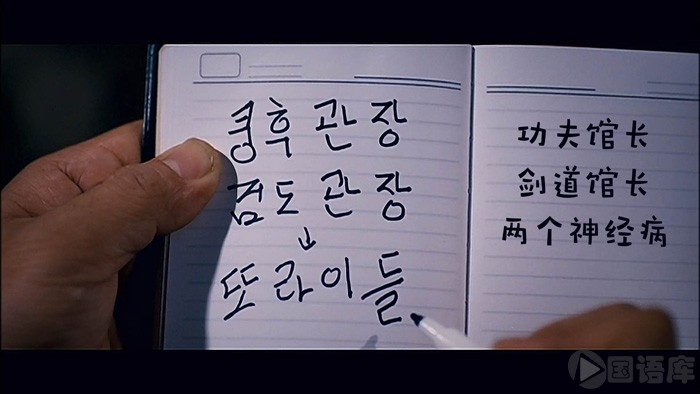 쿵후관장
검도관장
↓
또라이들
功夫馆长
剑道馆长
两个神经病
国语库